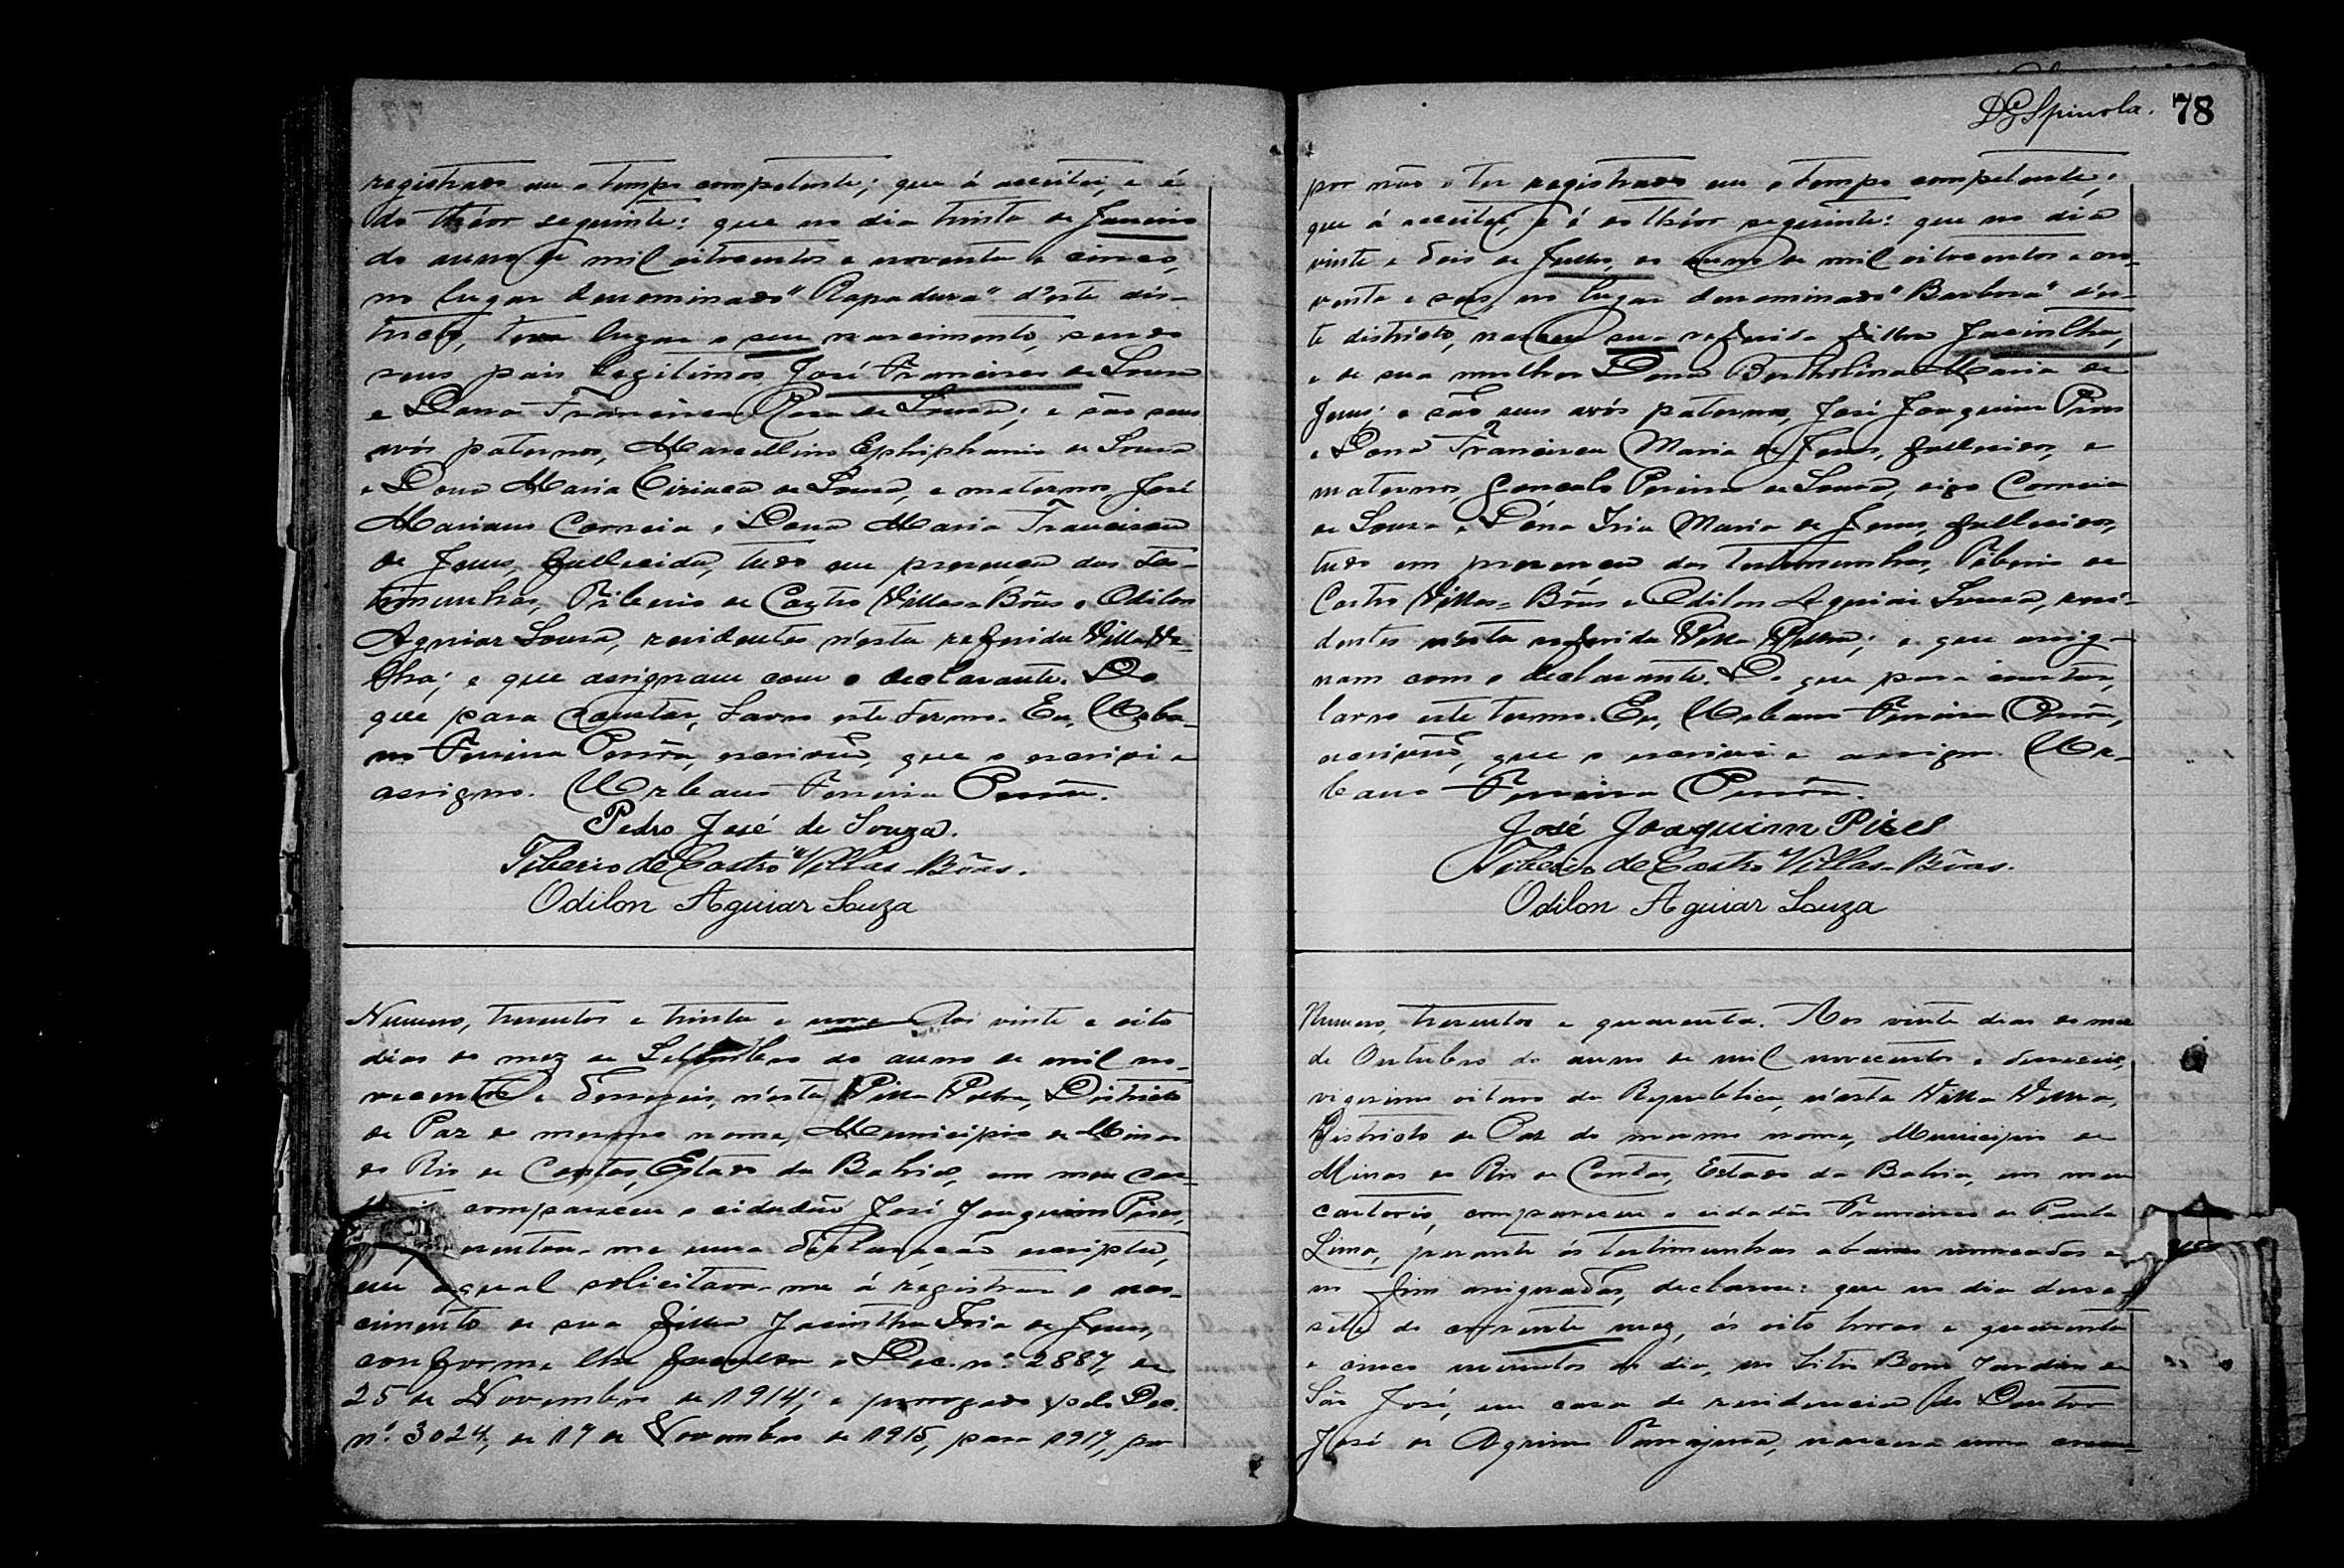 registrado em o tempo competente; que á acceitei, e é
do théor seguinte: que no dia trinta de Janeiro
do anno de mil oitocentos e noventa e cinco,
no lugar denominado "Rapadura" d'este dis-
tricto, teve lugar o seu nascimento, sendo
seus pais legitimos José Francisco de Sousa
e Dona Francisca Rosa de Sousa; e são seus
avós paternos, Marcellino Ephiphanio de Sousa
e Dona Maria Ciriaca de Sousa, e maternos, José
Mariano Correia e Dona Maria Francisca
de Jesus, fallecida, tudo em presença das tes-
timunhas, Tiberio de Castro Villas-Bôas e Odilon
Aguiar Sousa, residentes n'esta referida Villa Ve-
lha; e que assignam com o declarante. Do
que para constar, lavro este termo. Eu, Urba-
no Ferreira Pessôa, escrivão, que o escrivi e
assigno. Urbano Ferreira Pessôa.
Pedro José de Souza.
Tiberio de Castro Villas-Bôas.
Odilon Aguiar Souza
Numero, trezentos e trinta e nove Aos vinte e oito
dias do mez de Setembro do anno de mil no-
vecentos e deseseis, n'esta Villa Velha, Districto
de Paz do mesmo nome, Municipio de Minas
do Rio de Contas, Estado da Bahia, em meu car-
compareceu o cidadão José Joaquim Pires,
sentou-me uma declaração escripta,
em a qual solicitava-me á registrar o nas-
cimento de sua filha Jacintha Iria de Jesus,
conforme lhe faculta o Dec. nº. 2887, de
25 de Novembro de 1914; e prorogado pelo Dec.
nº. 3024, de 17 de Novembro de 1915, para 1917, por
DG Spinola. 78
por não o ter registrado em o tempo competente;
que á acceitei, e é do théor seguinte: que no dia
vinte e dois de Julho, do anno de mil oitocentos e no-
venta e seis, no lugar denominado "Barbosa" d'es-
te districto, nasceu sua referida filha Jacintha,
e de sua mulher Dona Bertholina Maria de
Jesus; e são seus avós paternos, José Joaquim Pires
e Dona Francisca Maria de Jesus, fallecidos, e
maternos, Gonçalo Pereira de Sousa, digo Correia
de Sousa e Dona Iria Maria de Jesus, fallecidos,
tudo em presença das testemunhas, Tiberio de
Castro Villas-Bôas e Odilon Aguiar Sousa, resi-
dentes n'esta referida Villa Velha; e que assig-
nam com o declarante. Do que para constar,
lavro este termo. Eu, Urbano Ferreira Pessôa,
escrivão, que o escrivi e assigno. Ur-
bano Ferreira Pessôa.
José Joaquim Pires
Tiberio de Castro Villas-Bôas.
Odilon Aguiar Souza
Numero, trezentos e quarenta. Aos vinte dias do mez
de Outubro do anno de mil novecentos e deseseis,
vigesimo oitavo da Republica, n'esta Villa Velha,
Districto de Paz do mesmo nome, Municipio de
Minas do Rio de Contas, Estado da Bahia, em meu
cartorio, compareceu o cidadão Francisco de Paula
Lima, perante ás testimunhas abaixo nomeadas e
no fim assignadas, declarou: que no dia deze-
sete do corrente mez, ás oito horas e quarenta
e cinco minutos do dia, no Sitio Bom Jardim de
São José, em casa de residencia do Doutor
José de Aquino Tanajura, nascera uma crean-